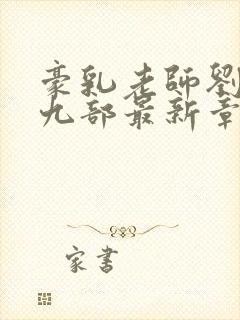 豪乳老師劉
九部最新章
家書